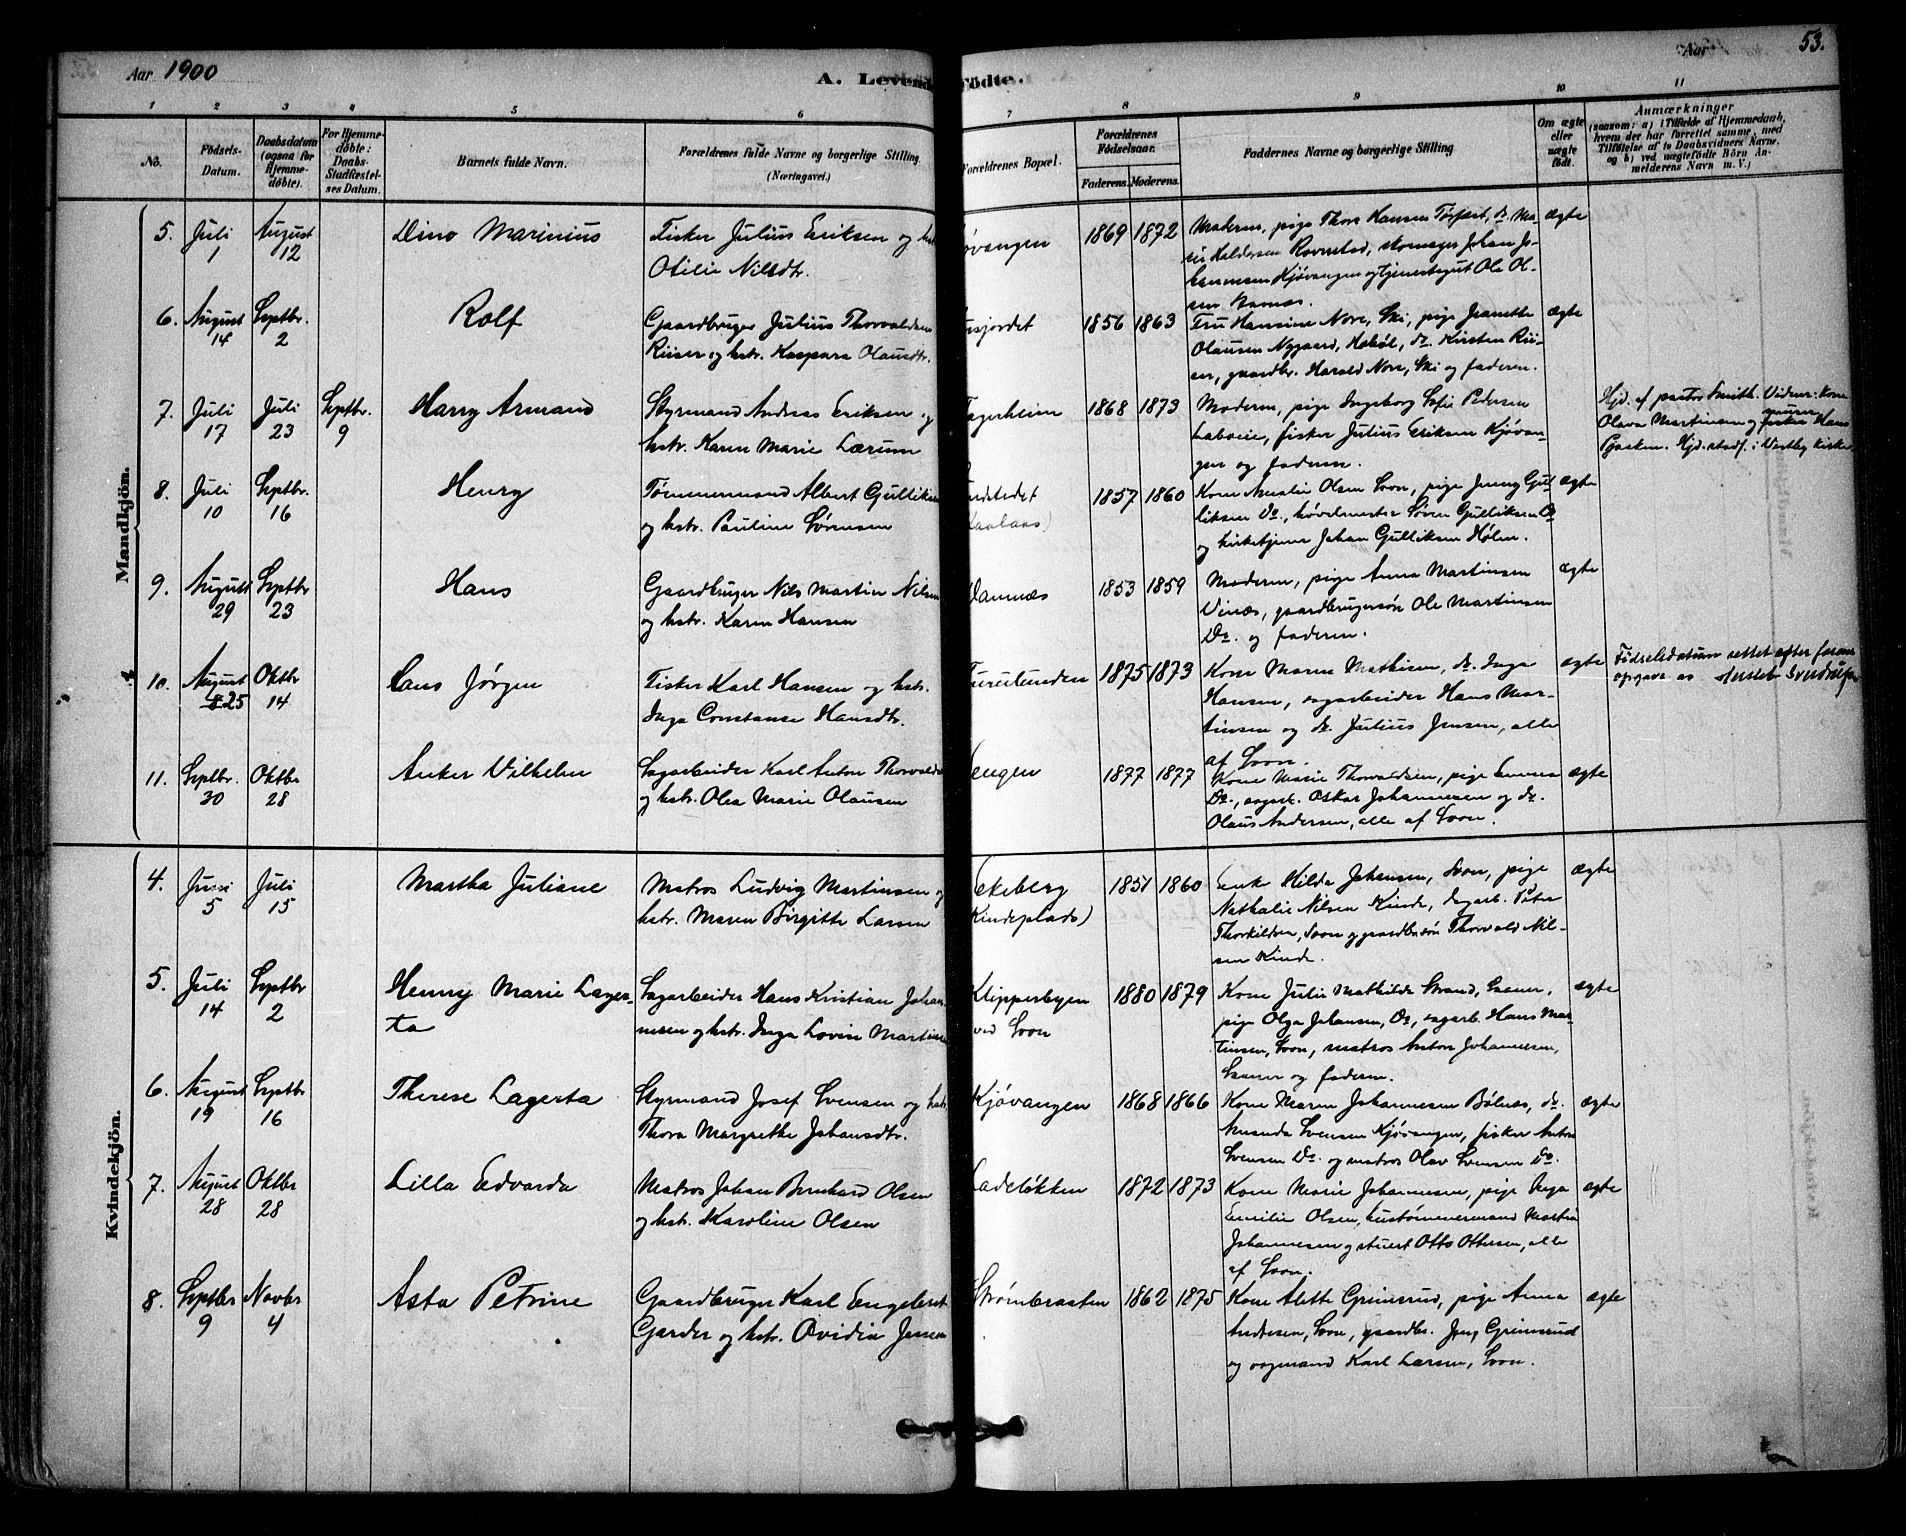 Aar 1900
A. Levende
Födte.
Aar
53.
1 2 3 4 5 6 7 8 9 10 11
No.
Födsels-Datum.
Daabsdatum (ogsaa for Hjemme-döbte).
For Hjemme-döbte: Daabs-Stadfæstel-ses Datum.
Barnets fulde Navn.
Forældrenes fulde Navne og borgerlige Stilling (Næringsvei.)
Forældrenes Bopæl.
Forældrenes Födselsaar.
Faderens. Moderens.
Faddernes Navne og borgerlige Stilling
Om ægte eller uægte födt.
Anmærkninger
(saasom: a) i Tilfælde af Hjemmedaab,
hvem der har forrettet samme, med
Tilföielse af to Daabsvidners Navne,
og b) ved uægtefödte Börn An-
melderens Navn m. V.)
Mandkjön.
5. Juli 1 August 12 Dino Marinius Fisker Julius Eriksen og hstr.
Otilie Nilsdtr.
øvangen 1869 1872 Moderen, pige Thora Hansen Torfæst, do. Ma-
rie Haldorsen Ravnstad, skomager Johan Jo-
hannesen Kjøvangen og tjenestegut Ole Ol-
sen Namæs.
ægte
6. August 14 Septbr. 2 Rolf Gaardbruger Julius Thorvaldsen
Riiser og hstr. Kaspara Olausdtr.
usjordet 1856 1863 Fru Hansine Nore, Ski, pige Jeanette
Olausen Nygaard, Hobøl, do. Kirsten Rii-
ser, gaardbr. Harald Nore, Ski og faderen.
ægte
7. Juli 17 Juli 23 Septbr. 9 Harry Armand Styrmand Andreas Eriksen og
hstr. Karen Marie Lærum
Fagerheim 1868 1873 Moderen, pige Ingeborg Sofie Pedersen
Laboeie, fisker Julius Eriksen Kjøvan-
gen og faderen.
Hjd. af pastor Smith. Vidner: Kone
Olava Martinsen og murer Hans
Hjd. stadf. i Vestby kirke
8. Juli 10 Septbr. 16 Henry Tømmermand Albert Gulliksen
og hstr. Pauline Sørensen
1857 1860 Kone Amalie Olsen Soon, pige Jenny Gul-
liksen Do., hovslmester Søren Gulliksen Do
og kirketjener Johan Gulliksen Hølen.
ægte
9. August 29 Septbr 23 Hans Gaardbruger Nils Martin Nilsen
og hstr. Karen Hansen
Vamnæs 1853 1859 Moderen, pige Anna Martinsen
Vinæs, gaardbrugersøn Ole Martinsen
Do. og faderen.
ægte
10. August 25 Oktbr 14 Hans Jørgen Fisker Karl Hansen og hstr.
Inga Constanse Hansdtr.
Furulunden 1875 1873 Kone Maren Mathisen, do. Inga
Hansen, sagarbeider Hans Mar-
tinsen og do. Julius Jensen, alle
af Soon.
ægte
Fødselsdatum rettet efter foran
opgave
11. Septbr. 30 Oktbr 28 Anker Vilhelm Sagarbeider Karl Anton Thorvalds
og hstr. Olea Marie Olausen
engen 1877 1877 Kone Marie Thorvaldsen, pige Emma
Do., sagarb. Oskar Johannesen og do.
Olaus Andersen, alle af Soon.
ægte
Kvindekjön.
4. Juni 5 Juli 15 Martha Juliane Matros Ludvig Martinsen og
hstr. Maren Birgitte Larsen
Ekeberg
(Kindeplads)
1851 1860 Enke Hilda Johansen, Soon, pige
Nathalie Nilsen Kinde, sagarb. Peter
Thorkildsen, Soon og gaardbrsøn Thorvald Nil-
sen Kinde.
ægte
5. Juli 14 Septbr 2 Henny Marie Lager-
ta
Sagarbeider Hans Kristian Johan-
nesen og hstr. Inga Lovise Martinsen
Klipperbyen
ved Soon
1880 1879 Kone Julie Mathilde Strand, Saaner,
pige Olga Johansen, Do., sagarb. Hans Mar-
tinsen, Soon, matros Anton Johannesen,
Saaner og faderen.
ægte
6. August 19 Septbr 16 Therese Lagerta Styrmand Josef Svensen og hstr
Thora Margrethe Johansdtr.
Kjøvangen 1868 1866 Kone Maren Johannesen Bølnæs, do.
Amanda Svensen Kjøvangen, fisker Anton
Svensen Do. og matros Olav Svensen Do.
ægte
7. August 28 Oktbr 28 Lilla Edvarda Matros Johan Bernhard Olsen
og hstr. Karoline Olsen
Ladeløkken 1872 1873 Kone Marie Johannesen, pige Inga
Emilie Olsen, hustømmermand Martin
Johannesen og stuert Otto Ottersen, alle
af Soon.
ægte
8. Septbr 9 Novbr 4 Asta Petrine Gaardbruger Karl Engebret
Garder og hstr. Ovidia Jensen
Strømbraaten 1862 1875 Kone Alette Grimsrud, pige Anna
Andresen, Soon, gaardbr. Jens Grimsrud
og sagmand Karl Larsen, Soon.
ægte